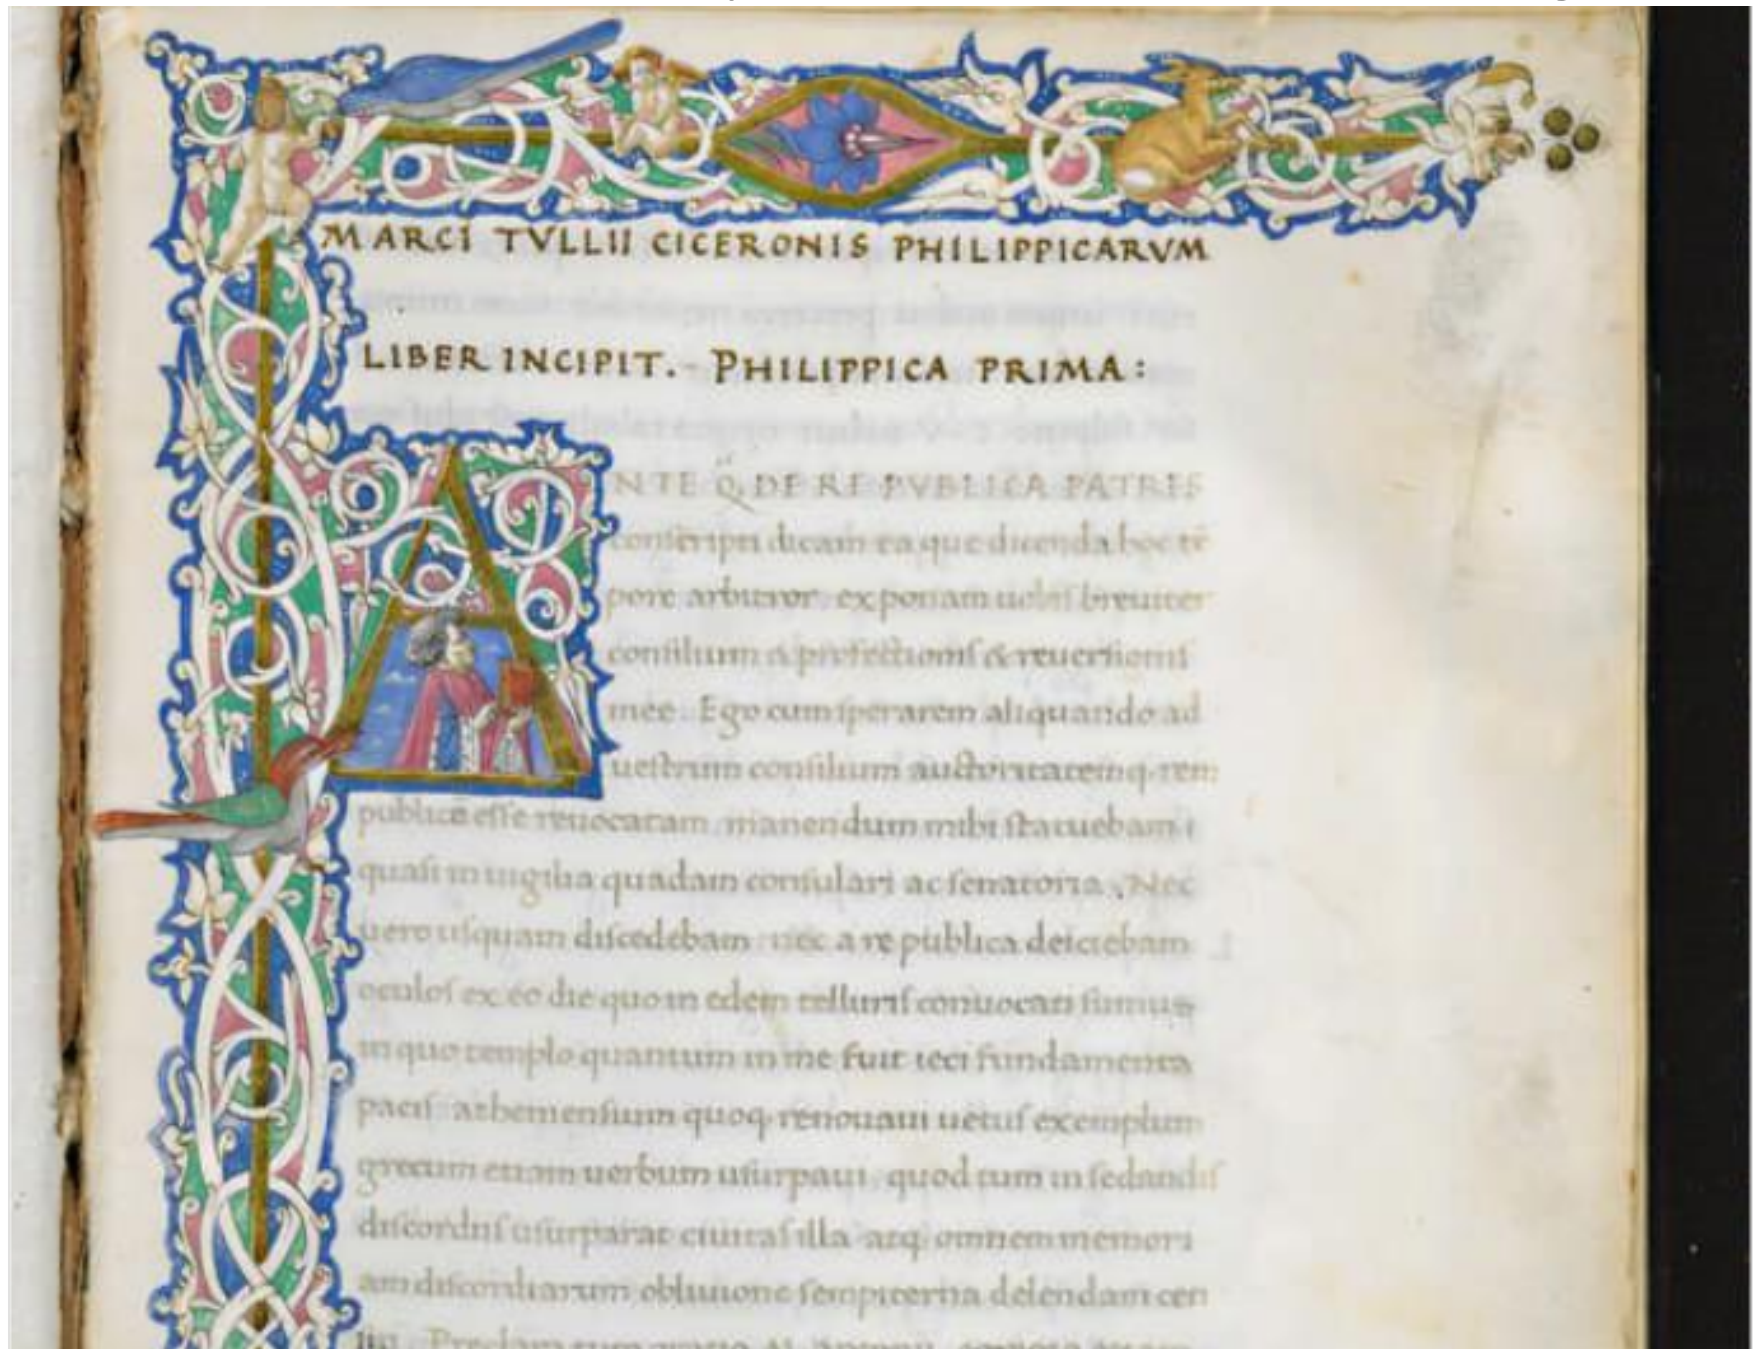 MARCI TVLLII CICERONIS PHILIPPICARVM
LIBER INCIPIT. PHILIPPICA PRIMA:
ANTE Q̃ DE RE PVBLICA PATRES
conscripti dicam ea que dicenda hoc tẽ
pore arbitror exponam uobis breuiter
consilium & profectionis & reuersionis
mee. Ego cum sperarem aliquando ad
uestrum consilium auctoritatemq. rem
publicã esse reuocatam manendum mihi statuebam
quasi in uigilia quadam consulari ac senatoria. Nec
uero usquam discedebam nec a re publica deiciebam
oculos ex eo die quo in edem telluris conuocati sumus
in quo templo quantum in me fuit ieci fundamenta
pacis atheniensium quoq. renouaui uetus exemplum
grecum etiam uerbum usurpaui quod tum in sedandis
discordiis usurparat ciuitas illa atq. omnem memori
am discordiarum obliuione sempiterna delendam cen
Preclara tum oratio M. Antonii